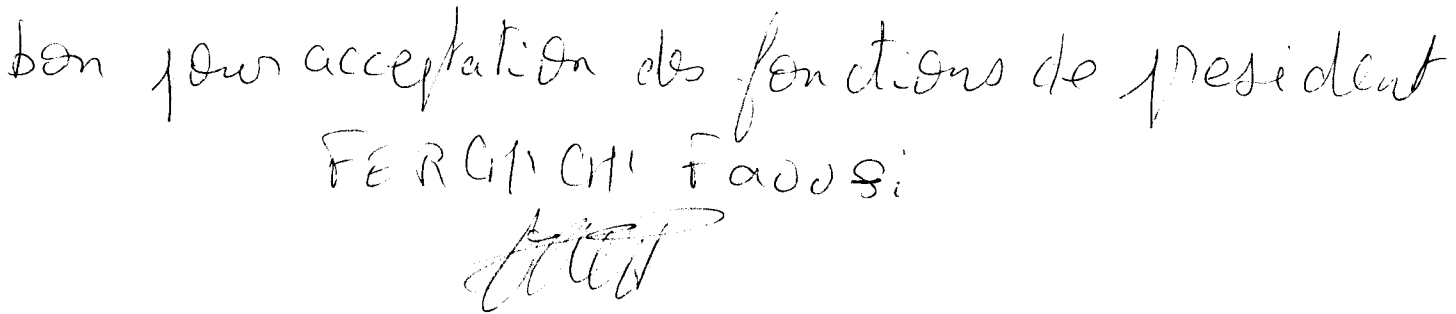 bon pour acceptation des fonctions de president
FERCHICHI Faouzi